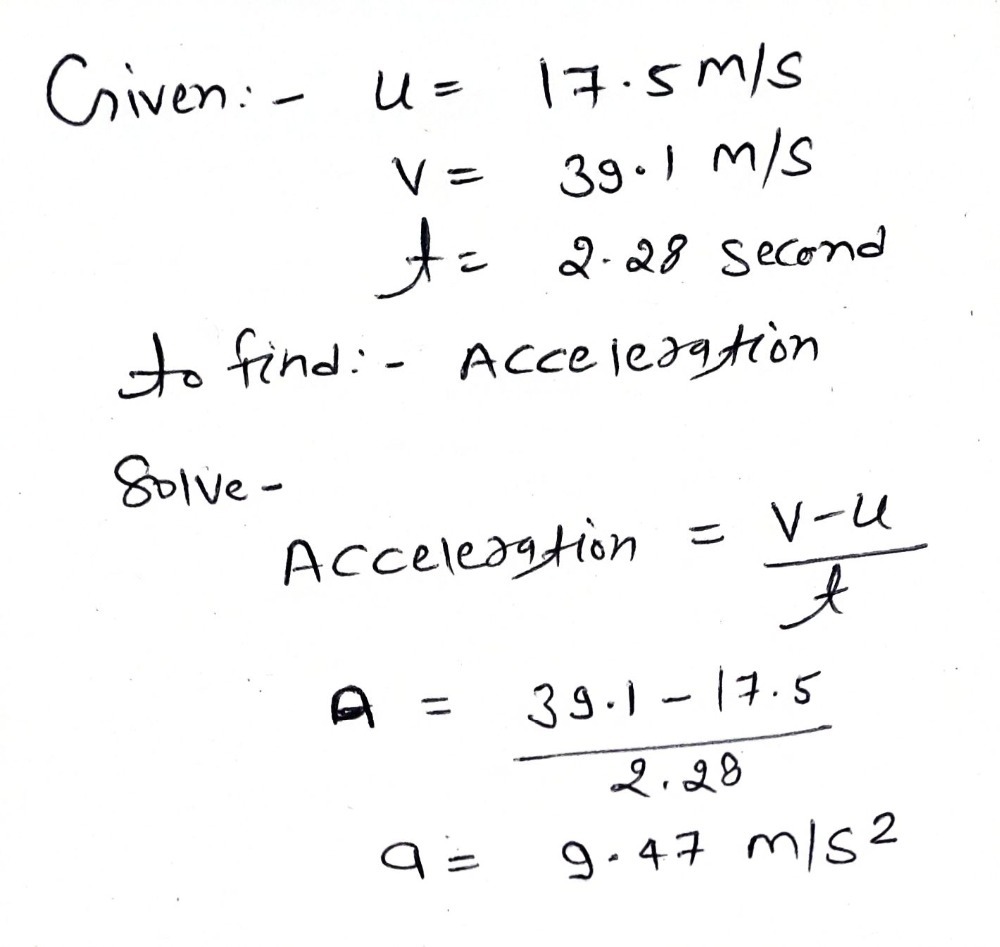 Given:- u = 17.5 m/s
v = 39.1 m/s
t = 2.28 second
to find:- Acceleration
Solve -
Acceleration = v-u
t
A = 39.1 - 17.5
2.28
a = 9.47 m/s2